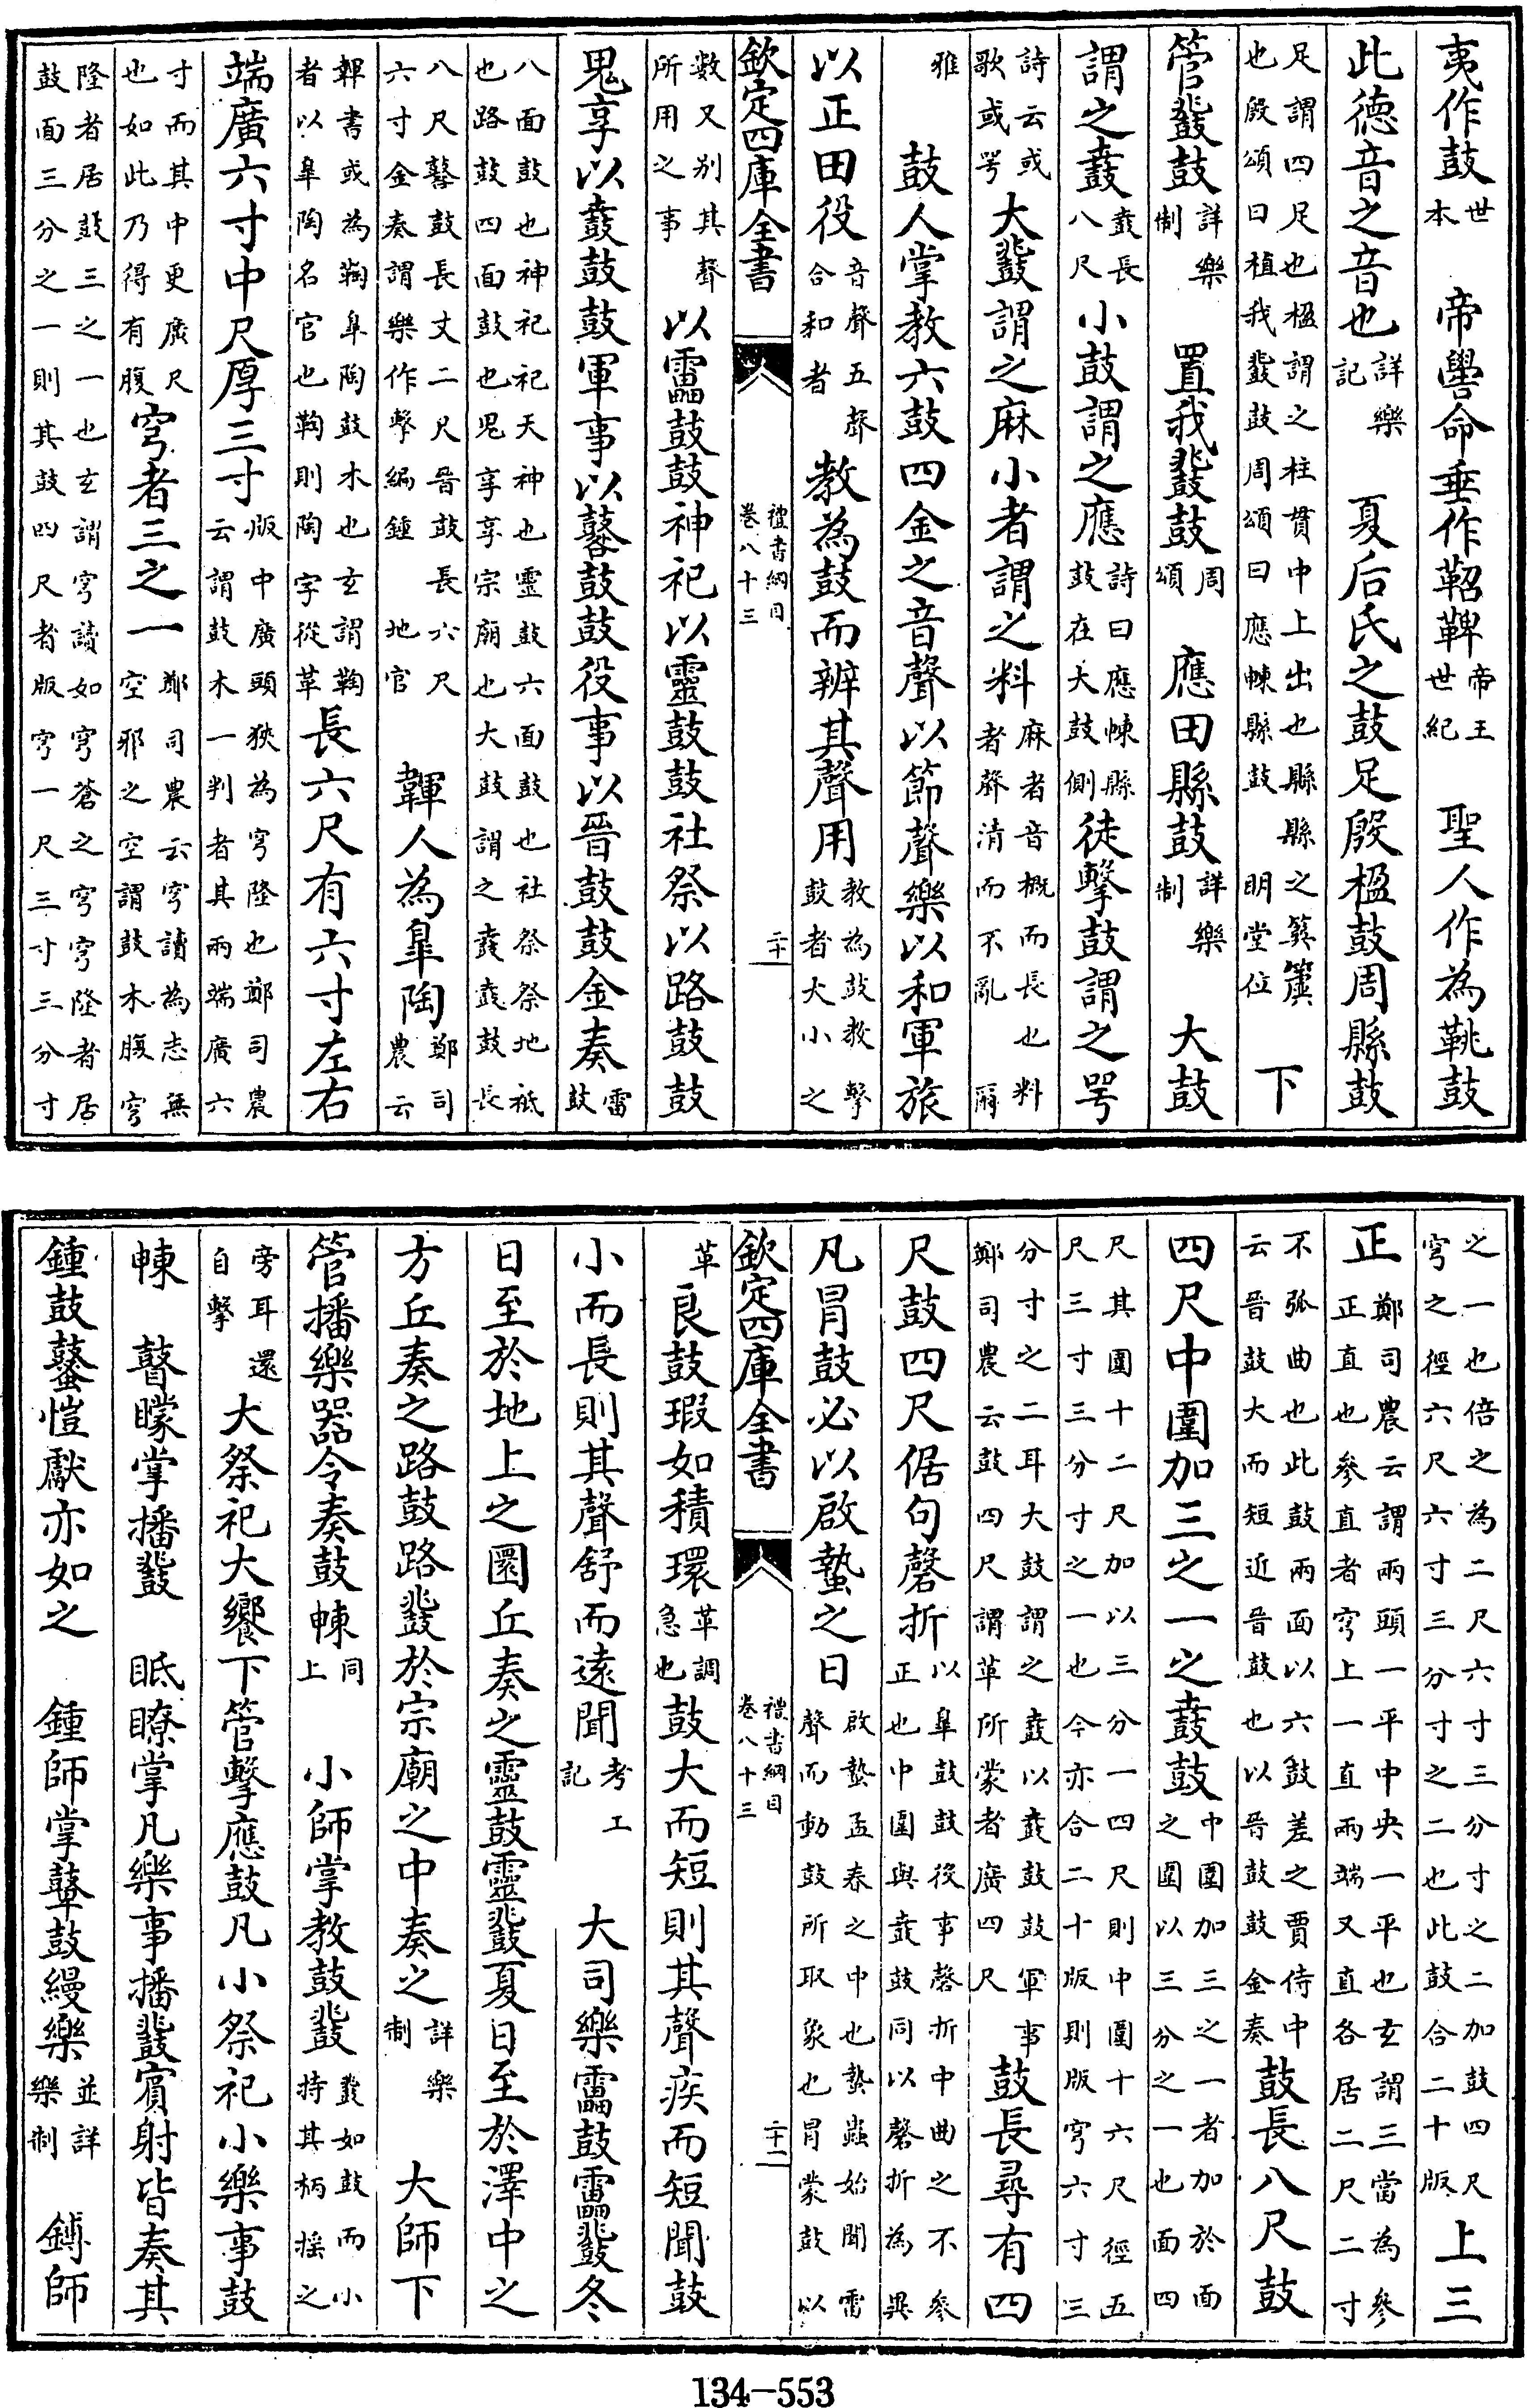 夷作鼓世本　帝嚳命垂作鞀鞞帝王世紀　聖人作為鞉鼓
此德音之音也詳樂記　夏后氏之鼓足殷楹鼓周縣鼓
足謂四足也楹謂之柱貫中上出也縣縣之簨簴
也殷頌曰植我鼗鼓周頌曰應朄縣鼓　明堂位　下
管鼗鼓詳樂制　置我鼗鼓周頌　應田縣鼓詳樂制　大鼓
謂之鼖鼖長八尺小鼓謂之應詩曰應朄縣鼓在大鼓側徒擊鼓謂之咢
詩云或歌或咢大鼗謂之麻小者謂之料麻者音概而長也料者聲清而不亂　爾
雅　鼓人掌教六鼓四金之音聲以節聲樂以和軍旅
以正田役音聲五聲合和者教為鼓而辨其聲用教為鼓教擊鼓者大小之
欽定四庫全書　禮書綱目卷八十三　二十一
數又别其聲所用之事以靁鼓鼓神祀以靈鼓鼓社祭以路鼓鼓
鬼享以鼖鼓鼓軍事以鼛鼓鼓役事以晉鼓鼓金奏雷鼓
八面鼓也神祀祀天神也靈鼓六面鼓也社祭祭地祗
也路鼓四面鼓也鬼享享宗廟也大鼓謂之鼖鼖鼓長
八尺鼛鼓長丈二尺晉鼓長六尺六寸金奏謂樂作擊編鍾　地官　韗人為皐陶鄭司農云
韗書或為鞠皐陶鼓木也玄謂鞠者以皐陶名官也鞠則陶字從革長六尺有六寸左右
端廣六寸中尺厚三寸版中廣頭狹為穹隆也鄭司農云謂鼓木一判者其兩端廣六
寸而其中更廣尺也如此乃得有腹穹者三之一鄭司農云穹讀為志無空邪之空謂鼓木腹穹
隆者居鼓三之一也玄謂穹讀如穹蒼之穹穹隆者居
鼓面三分之一則其鼓四尺者版穹一尺三寸三分寸
之一也倍之為二尺六寸三分寸之二加鼓四尺穹之徑六尺六寸三分寸之二也此鼓合二十版上三
正鄭司農云謂兩頭一平中央一平也玄謂三當為參正直也參直者穹上一直兩端又直各居二尺二寸
不弧曲也此鼓兩面以六鼓差之賈侍中云晉鼓大而短近晉鼓也以晉鼓鼓金奏鼓長八尺鼓
四尺中圍加三之一之鼖鼓中圍加三之一者加於面之圍以三分之一也面四
尺其圍十二尺加以三分一四尺則中圍十六尺徑五
尺三寸三分寸之一也今亦合二十版則版穹六寸三
分寸之二耳大鼓謂之鼖以鼖鼓鼓軍事鄭司農云鼓四尺謂革所蒙者廣四尺鼓長尋有四
尺鼓四尺倨句磬折以皐鼓鼓役事磬折中曲之不參正也中圍與鼖鼓同以磬折為異
凡冒鼓必以啟蟄之日啟蟄孟春之中也蟄蟲始聞雷聲而動鼓所取象也冒蒙鼓以
欽定四庫全書　禮書綱目卷八十三　二十二
革良鼓瑕如積環革調急也鼓大而短則其聲疾而短聞鼓
小而長則其聲舒而遠聞考工記　大司樂靁鼓靁鼗冬
日至於地上之圜丘奏之靈鼓靈鼗夏日至於澤中之
方丘奏之路鼓路鼗於宗廟之中奏之詳樂制　大師下
管播樂器令奏鼓朄同上　小師掌教鼓鼗鼗如鼓而小持其柄搖之
旁耳還自擊大祭祀大饗下管擊應鼓凡小祭祀小樂事鼓
朄　瞽矇掌播鼗　眂瞭掌凡樂事播鼗賓射皆奏其
鍾鼓鼜愷獻亦如之　鍾師掌鼙鼓縵樂並詳樂制　鎛師
134-553